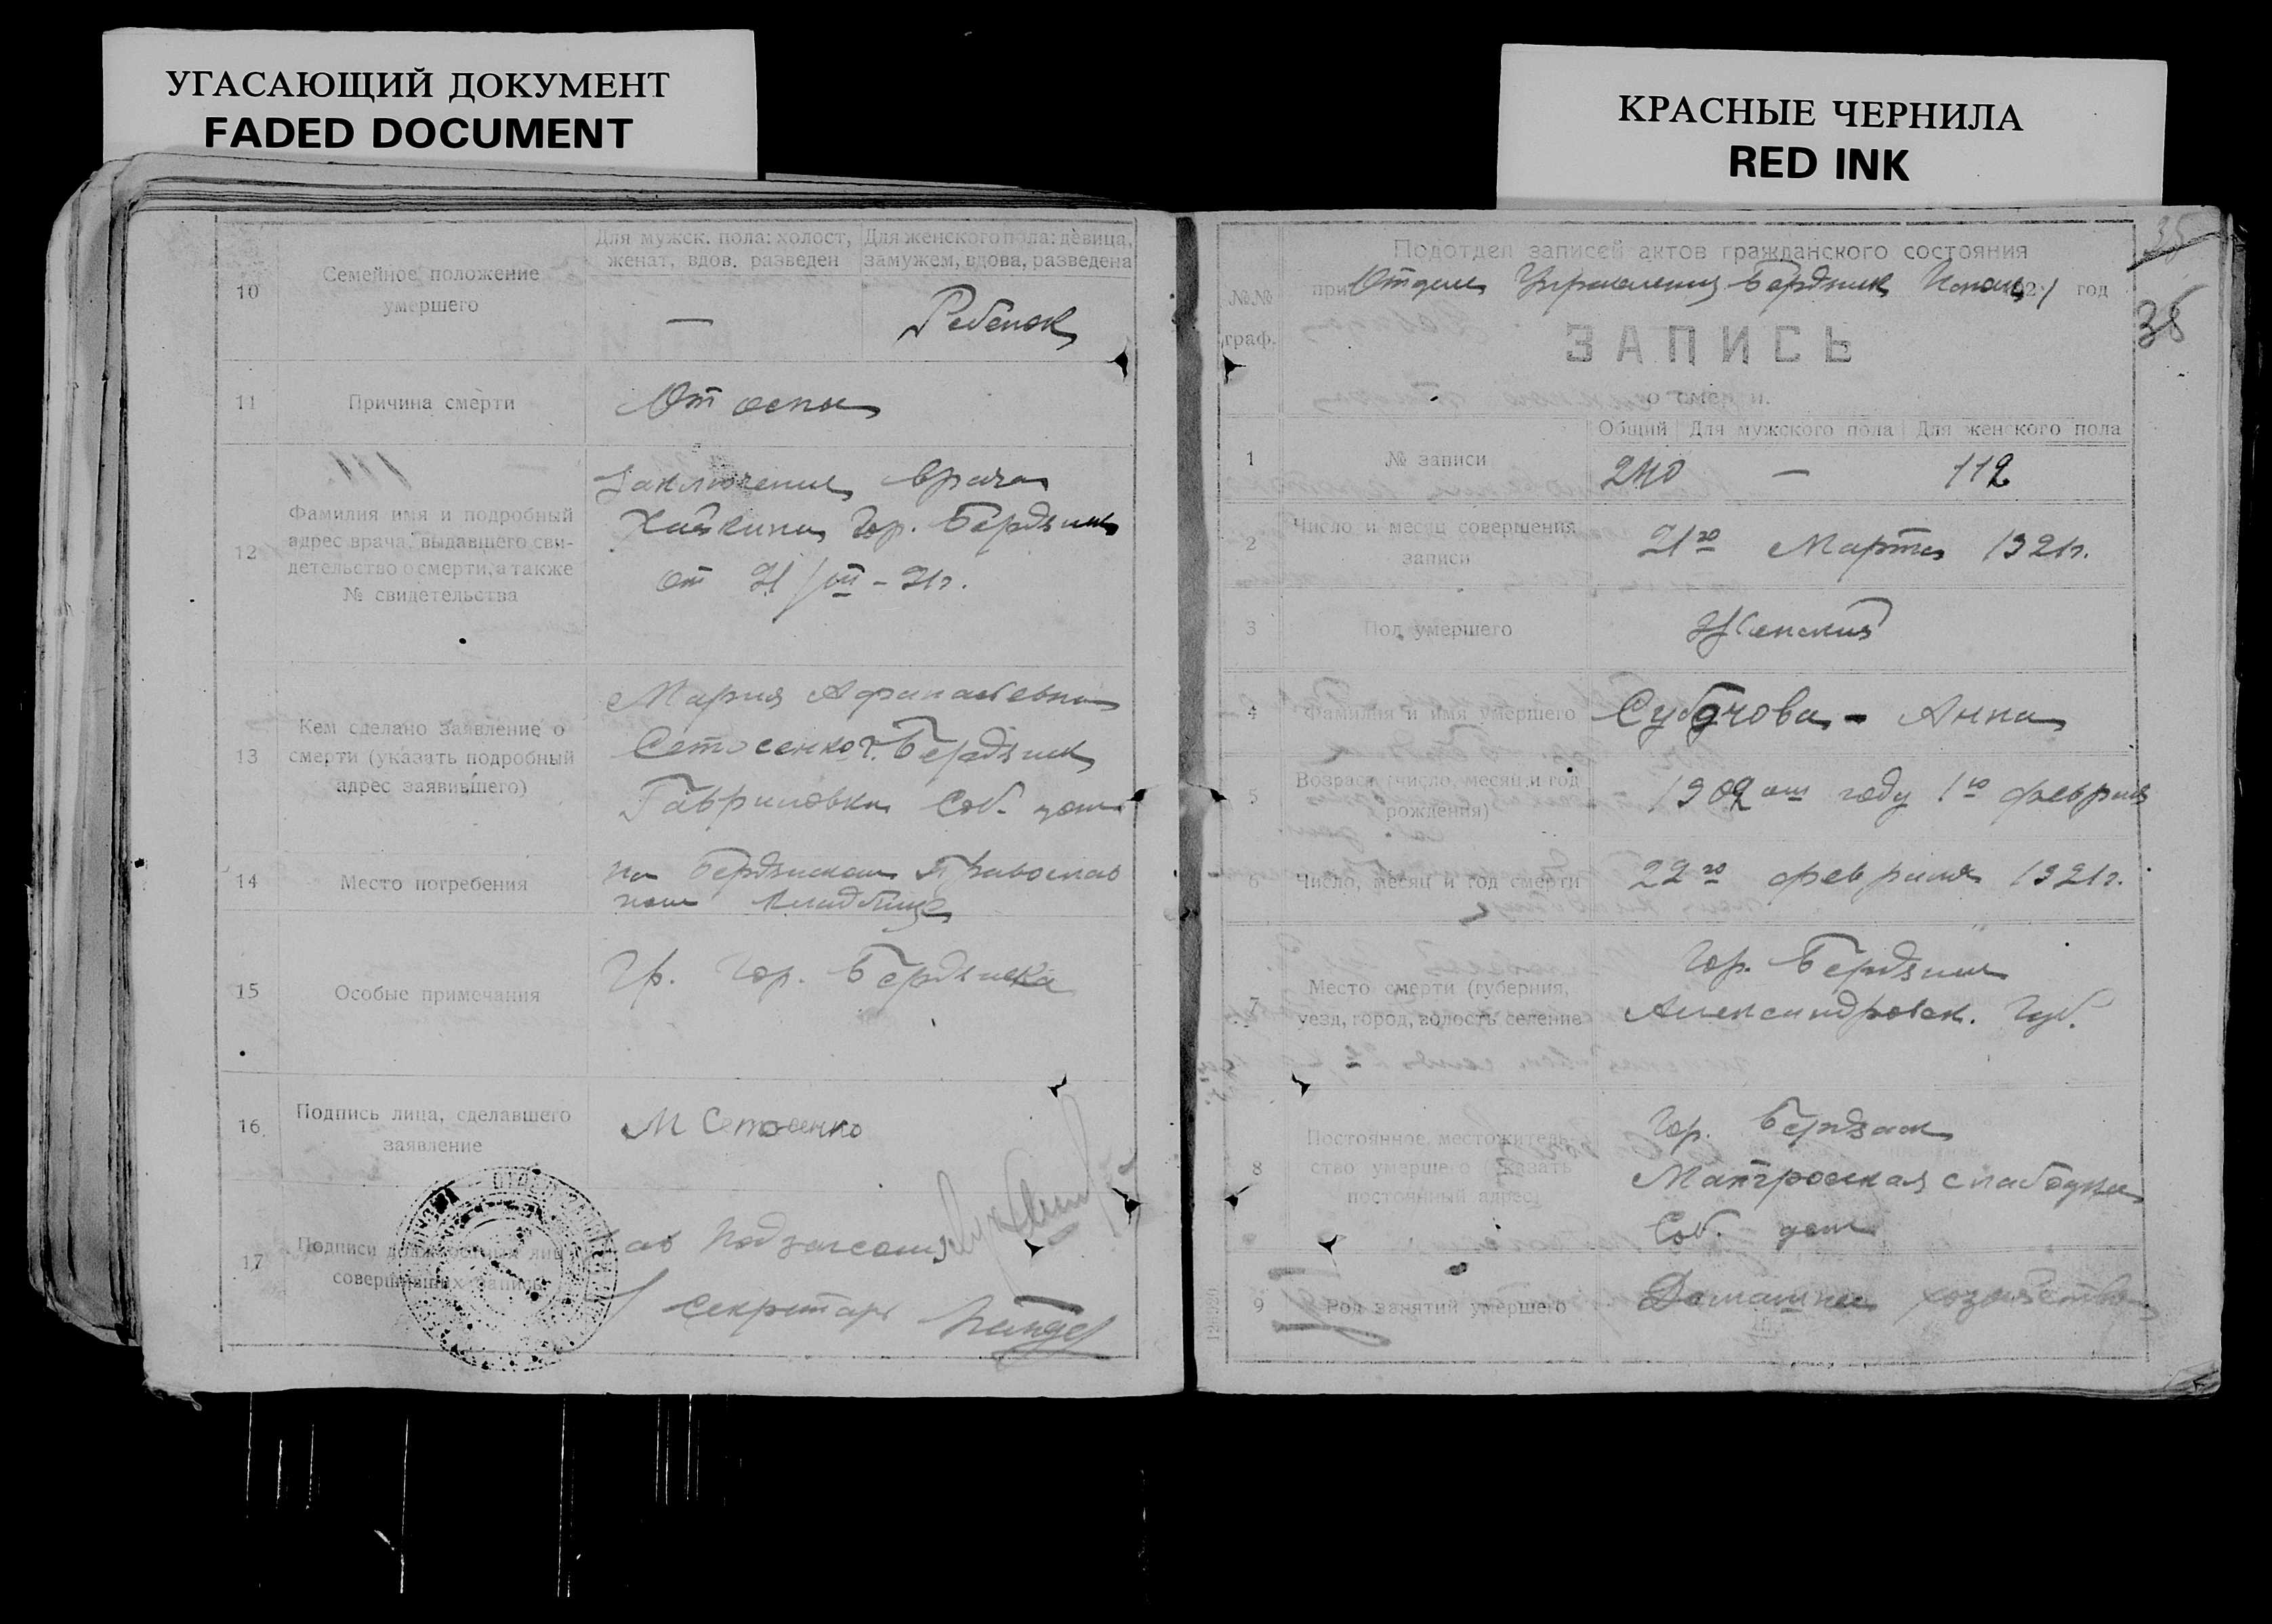 УГАСАЮЩИЙ ДОКУМЕНТ
FADED DOCUMENT
КРАСНЫЕ ЧЕРНИЛА
RED INK
10
Семейное положение
умершего
Для мужск. пола: холост,
женат, вдов, разведен
Для женского пола: девица,
замужем, вдова, разведена
—
Ребенок
11
Причина смерти
От оспы
12
Фамилия имя и подробный
адрес врача, выдавшего сви-
детельство о смерти, а также
№ свидетельства
Заключение врача
Хайкина Гор. Бердянск
от 21/III-21г.
13
Кем сделано заявление о
смерти (указать подробный
адрес заявившего)
Мария Афанасьевна
г. Бердянск
Гавриловка Соб. дом
14
Место погребения
на Бердянском Православ
ном кладбище
15
Особые примечания
Гр. Гор. Бердянска
16
Подпись лица, сделавшего
заявление
М
17
Подписи должностных лиц
совершивших запись
Зав Подзагсом
Секретарь
35
36
Подотдел записей актов гражданского состояния
при Отделе Управления Бердянск 1921 год
№№
граф.
ЗАПИСЬ
о смерти.
Общий Для мужского пола Для женского пола
1
№ записи
240 — 112
2
Число и месяц совершения
записи
21го Марта 1921г.
3
Пол умершего
Женский
4
Фамилия и имя умершего
Субочова - Анна
5
Возраст (число, месяц и год
рождения)
1909 ом году 1го февраля
6
Число, месяц и год смерти
22го февраля 1921г.
7
Место смерти (губерния,
уезд, город, волость селение
Гор. Бердянск
Александровск. Губ.
8
Постоянное местожитель-
ство умершего (указать
постоянный адрес)
Гор. Бердянск
Матросская слабодка
Соб. дом
9
Род занятий умершего
Домашнее хозяйство